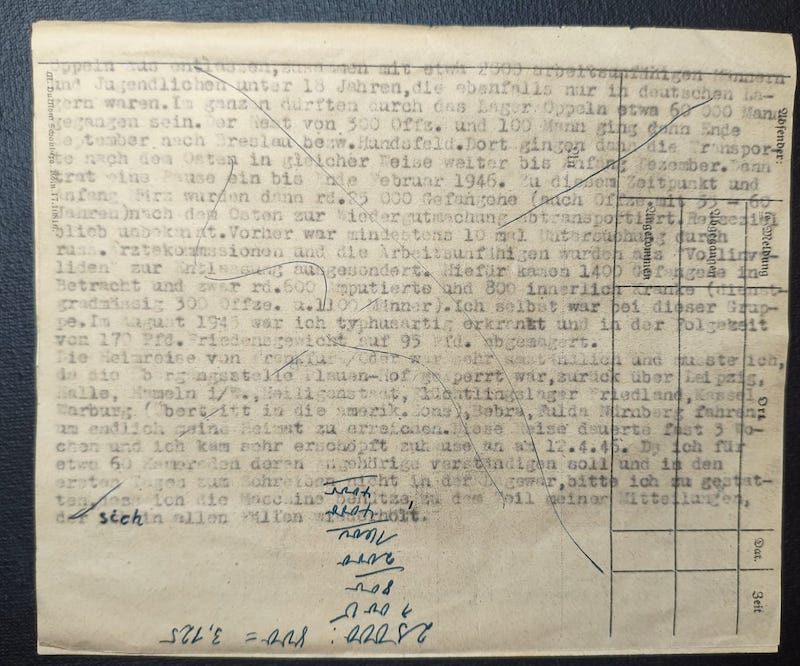 Oppeln aus entlassen, zusammen mit etwa 2000 arbeitsunfähigen Männern
und Jugendlichen unter 18 Jahren, die ebenfalls nur in deutschen La-
gern waren. Im ganzen dürften durch das Lager Oppeln etwa 60 000 Mann
gegangen sein. Der Rest von 300 Offz. und 100 Mann ging dann Ende
September nach Breslau bezw. Hundsfeld. Dort gingen dann die Transpor-
te nach dem Osten in gleicher Weise weiter bis Anfang Dezember. Dann
trat eine Pause ein bis Ende Februar 1946. Zu diesem Zeitpunkt und
Anfang März wurden dann rd. 25 000 Gefangene (auch Offze. mit 55 - 60
Jahren) nach dem Osten zur Wiedergutmachung abtransportiert. Reiseziel
blieb unbekannt. Vorher war mindestens 10 mal Untersuchung durch
russ. Ärztekommissionen und die Arbeitsunfähigen wurden als "Vollinva-
liden" zur Entlassung ausgesondert. Hiefür kamen 1400 Gefangene in
Betracht und zwar rd. 600 Amputierte und 800 innerlich Kranke (dienst-
gradmässig 300 Offze. u. 1100 Männer). Ich selbst war bei dieser Grup-
pe. Im August 1945 war ich typhusartig erkrankt und in der Folgezeit
von 170 Pfd. Friedensgewicht auf 95 Pfd. abgemagert.
Die Heimreise von Frankfurt/Oder war sehr umständlich und musste ich,
da die Übergangsstelle Plauen-Hof gesperrt war, zurück über Leipzig,
Halle, Hameln i/W., Heiligenstadt, Flüchtlingslager Friedland, Kassel,
Warburg (Übertritt in die amerik. Zone), Bebra, Fulda Nürnberg fahren,
um endlich meine Heimat zu erreichen. Diese Reise dauerte fast 3 Wo-
chen und ich kam sehr erschöpft zuhause an am 12.4.46. Da ich für
etwa 60 Kameraden deren Angehörige verständigen soll und in den
ersten Tagen zum Schreiben nicht in der Lage war, bitte ich zu gestat-
ten, dass ich die Maschine benütze, zu dem Teil meiner Mitteilungen,
der sich in allen Fällen wiederholt.
Absender:
An
te Meldung
Ausgegangen
Angekommen
Ort
Dat.
Zeit
25000 : 800 = 3,125
800
2000
1000
4000
4000